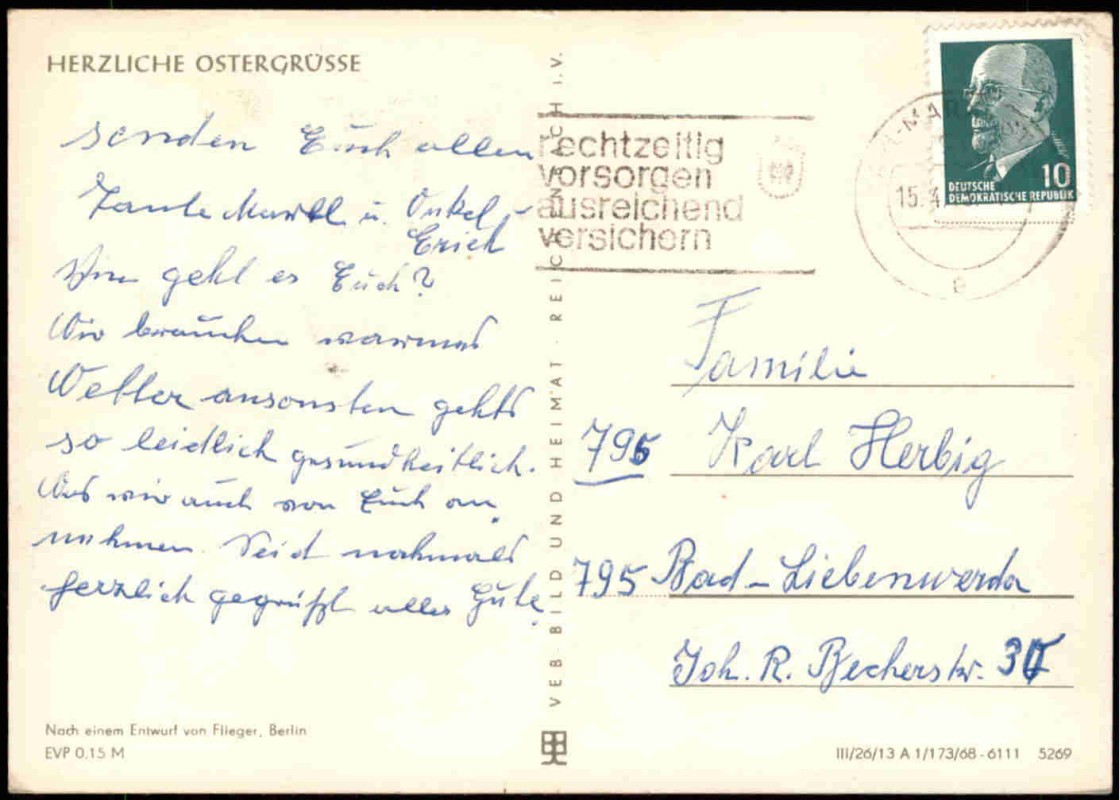 HERZLICHE OSTERGRÜSSE
senden Euch allen
Tante Martl u. Onkel
Erich
Wie geht es Euch?
Wir brauchen warmes
Wetter ansonsten gehts
so leidlich gesundheitlich.
Was wir auch von Euch an
nehmen. Seid nochmals
herzlich gegrüßt alles Gute
Nach einem Entwurf von Flieger, Berlin
EVP 0,15 M
VEB BILD UND HEIMAT · REICHENBACH I. V.
rechtzeitig
vorsorgen
ausreichend
versichern
15. 4
e
10
DEUTSCHE
DEMOKRATISCHE REPUBLIK
Familie
795 Karl Herbig
795 Bad-Liebenwerda
Joh. R. Becherstr.
III/26/13 A 1/173/68-6111 5269